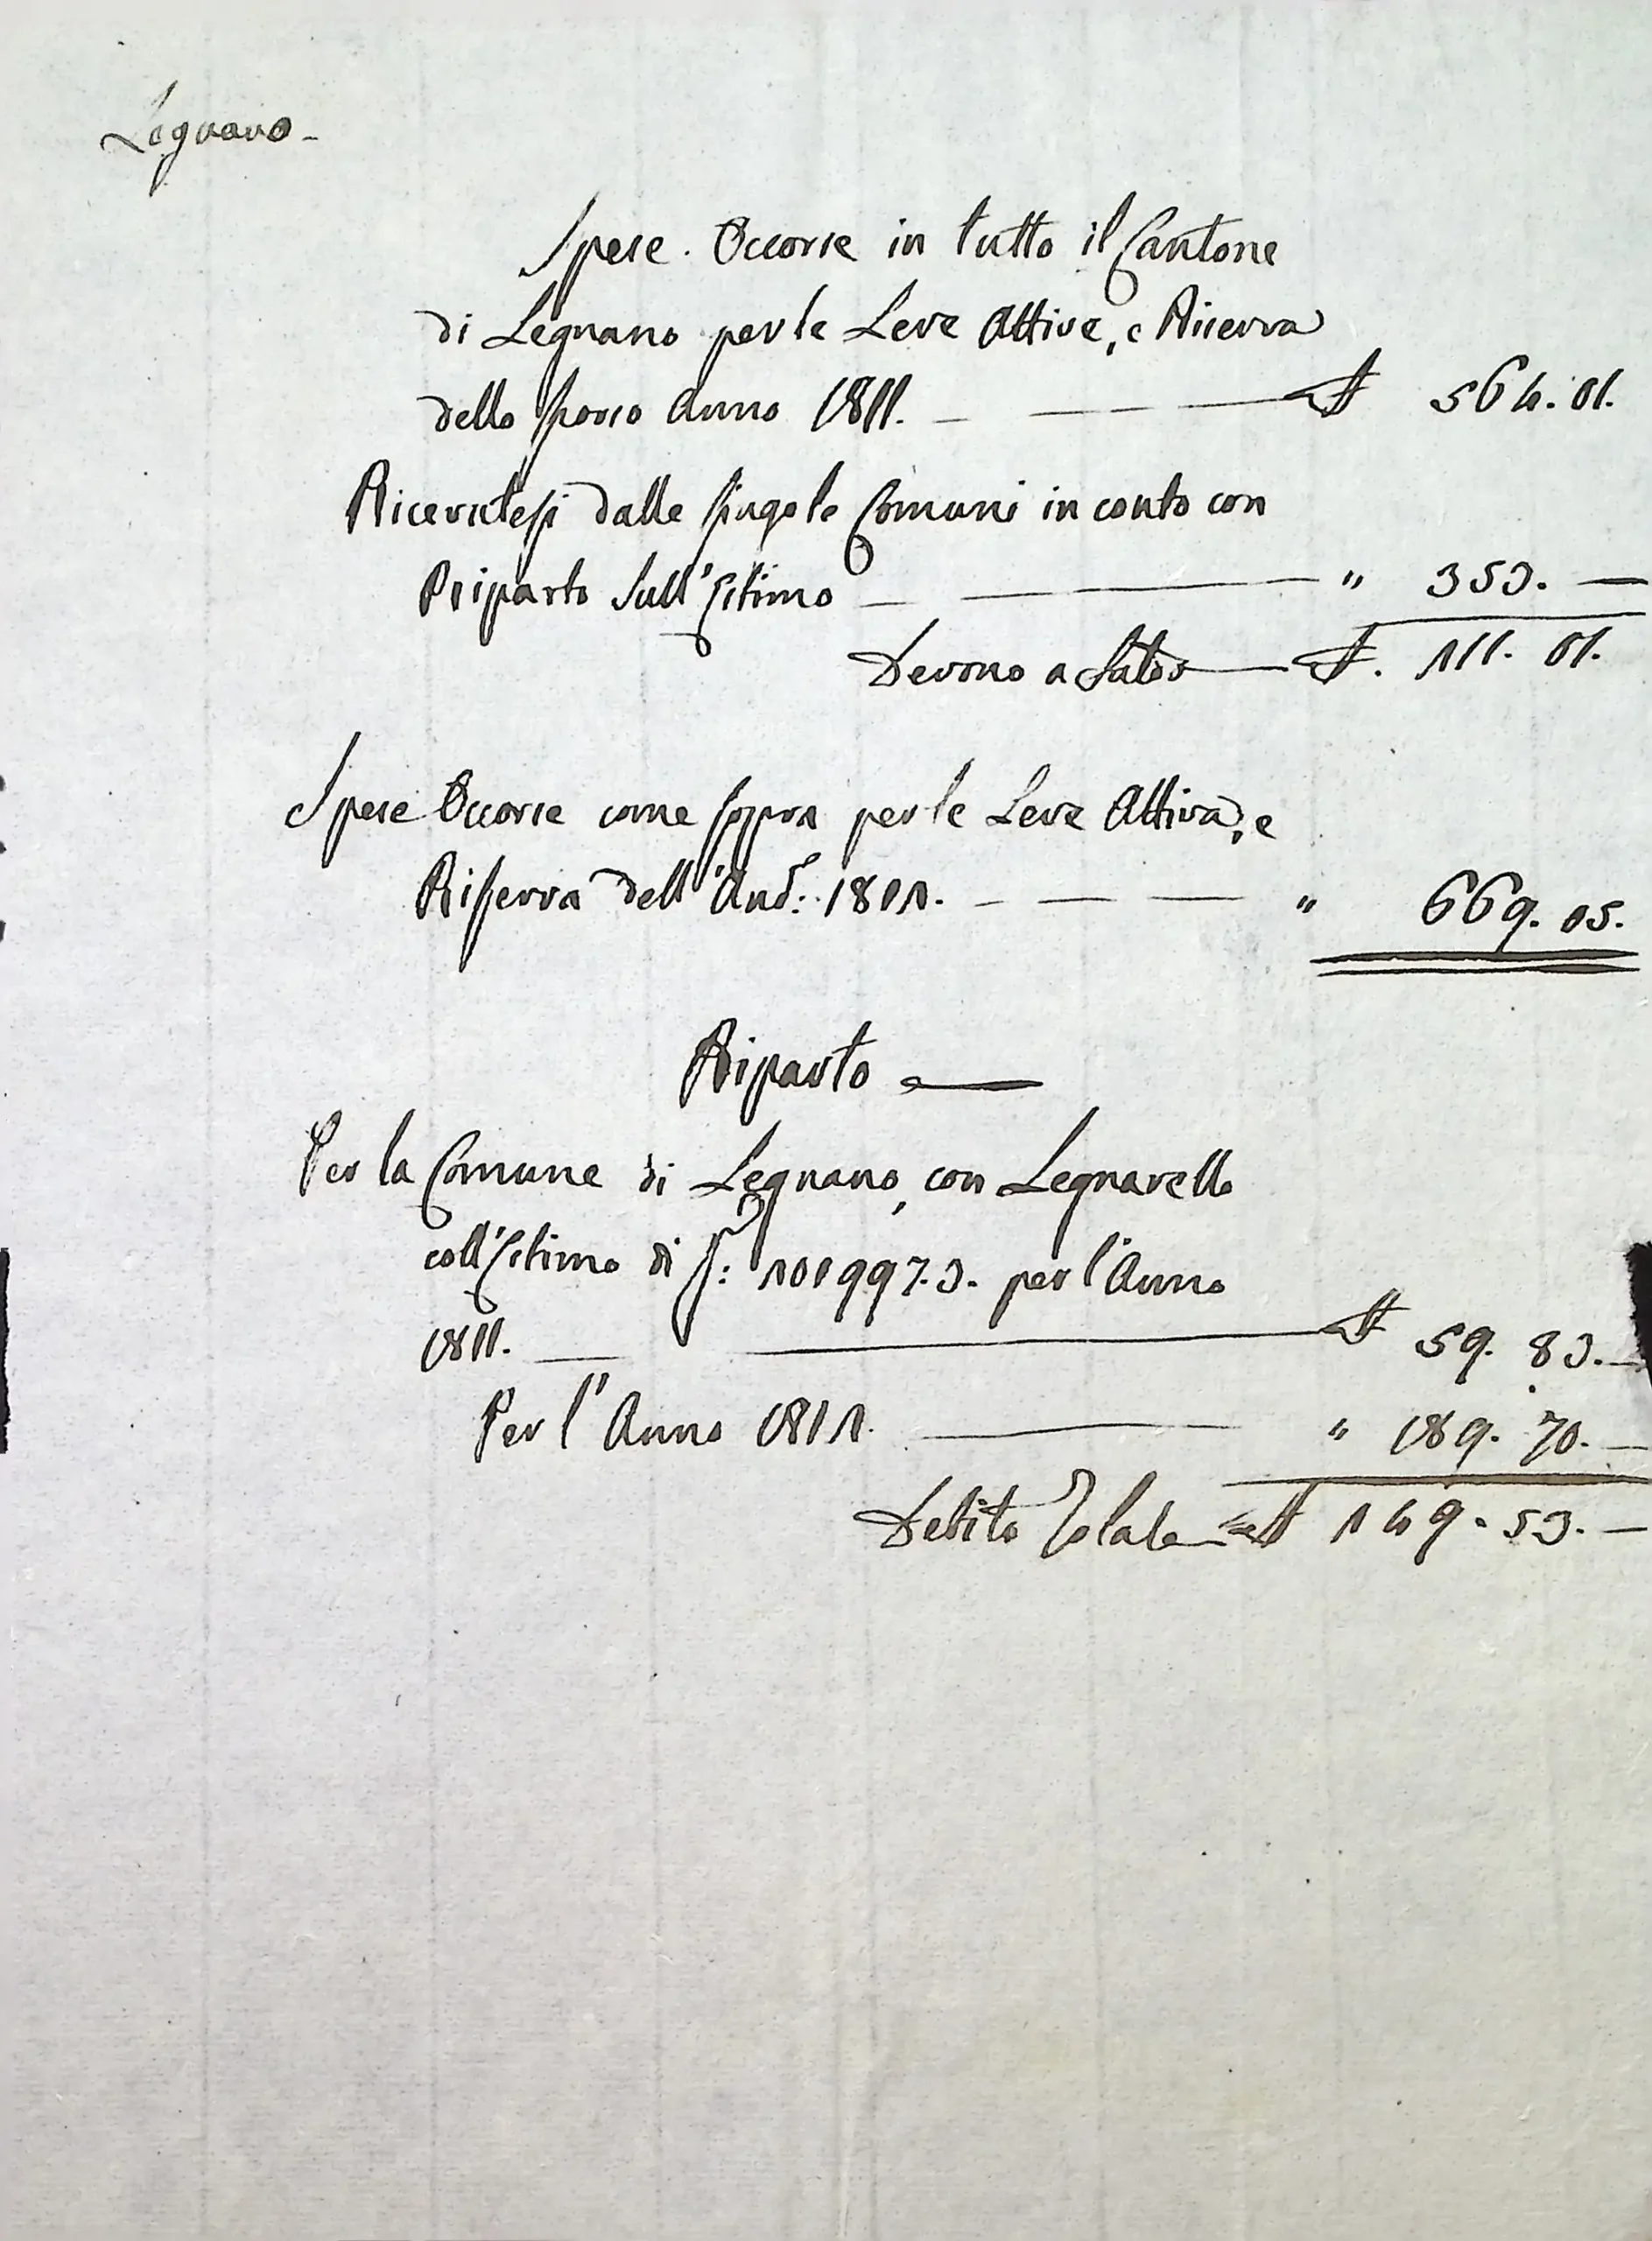 Legnano -
Spese Occorse in tutto il Cantone
di Legnano per le Leve Attive, e Riserva
dello scorso Anno 1811. — £ 564. 01.
Ricevutesi dalle singole Comuni in conto con
Riparto sull'Estimo — " 353. —
Devono a Saldo — £. 211. 01.
Spese Occorse come sopra per le Leve Attiva, e
Riserva dell'And.: 1812. — " 669. 05.
Riparto —
Per la Comune di Legnano, con Legnarello
coll'Estimo di S.: 201997.3. per l'Anno
1811. — £ 59. 83. —
Per l'Anno 1812. — " 189. 70. —
Debito Totale £ 249. 53. —